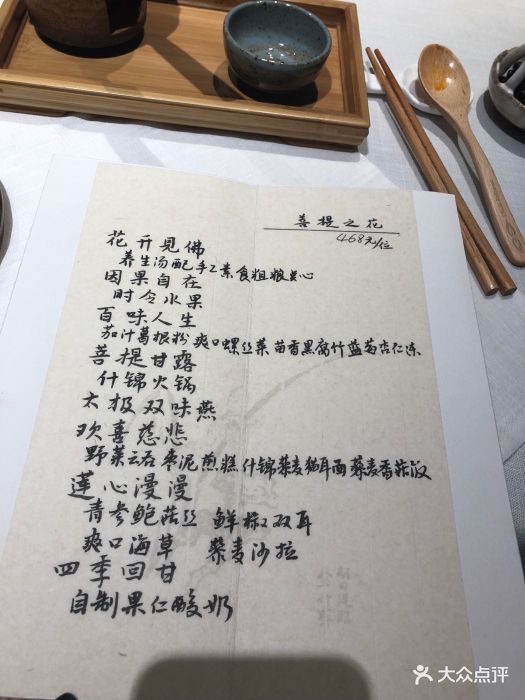 菩提之花
468元/位
花开见佛
养生汤配手工素食粗粮点心
因果自在
时令水果
百味人生
茄汁葛根粉 爽口螺丝菜 茴香黑腐竹 蓝莓杏仁冻
菩提甘露
什锦火锅
太极双味燕
欢喜慈悲
野菜云吞 枣泥煎糕 什锦藜麦猫耳面 藜麦香菇饭
莲心漫漫
青参鲍菇丝 鲜椒双耳
爽口海草 藜麦沙拉
四季回甘
自制果仁酸奶
大众点评